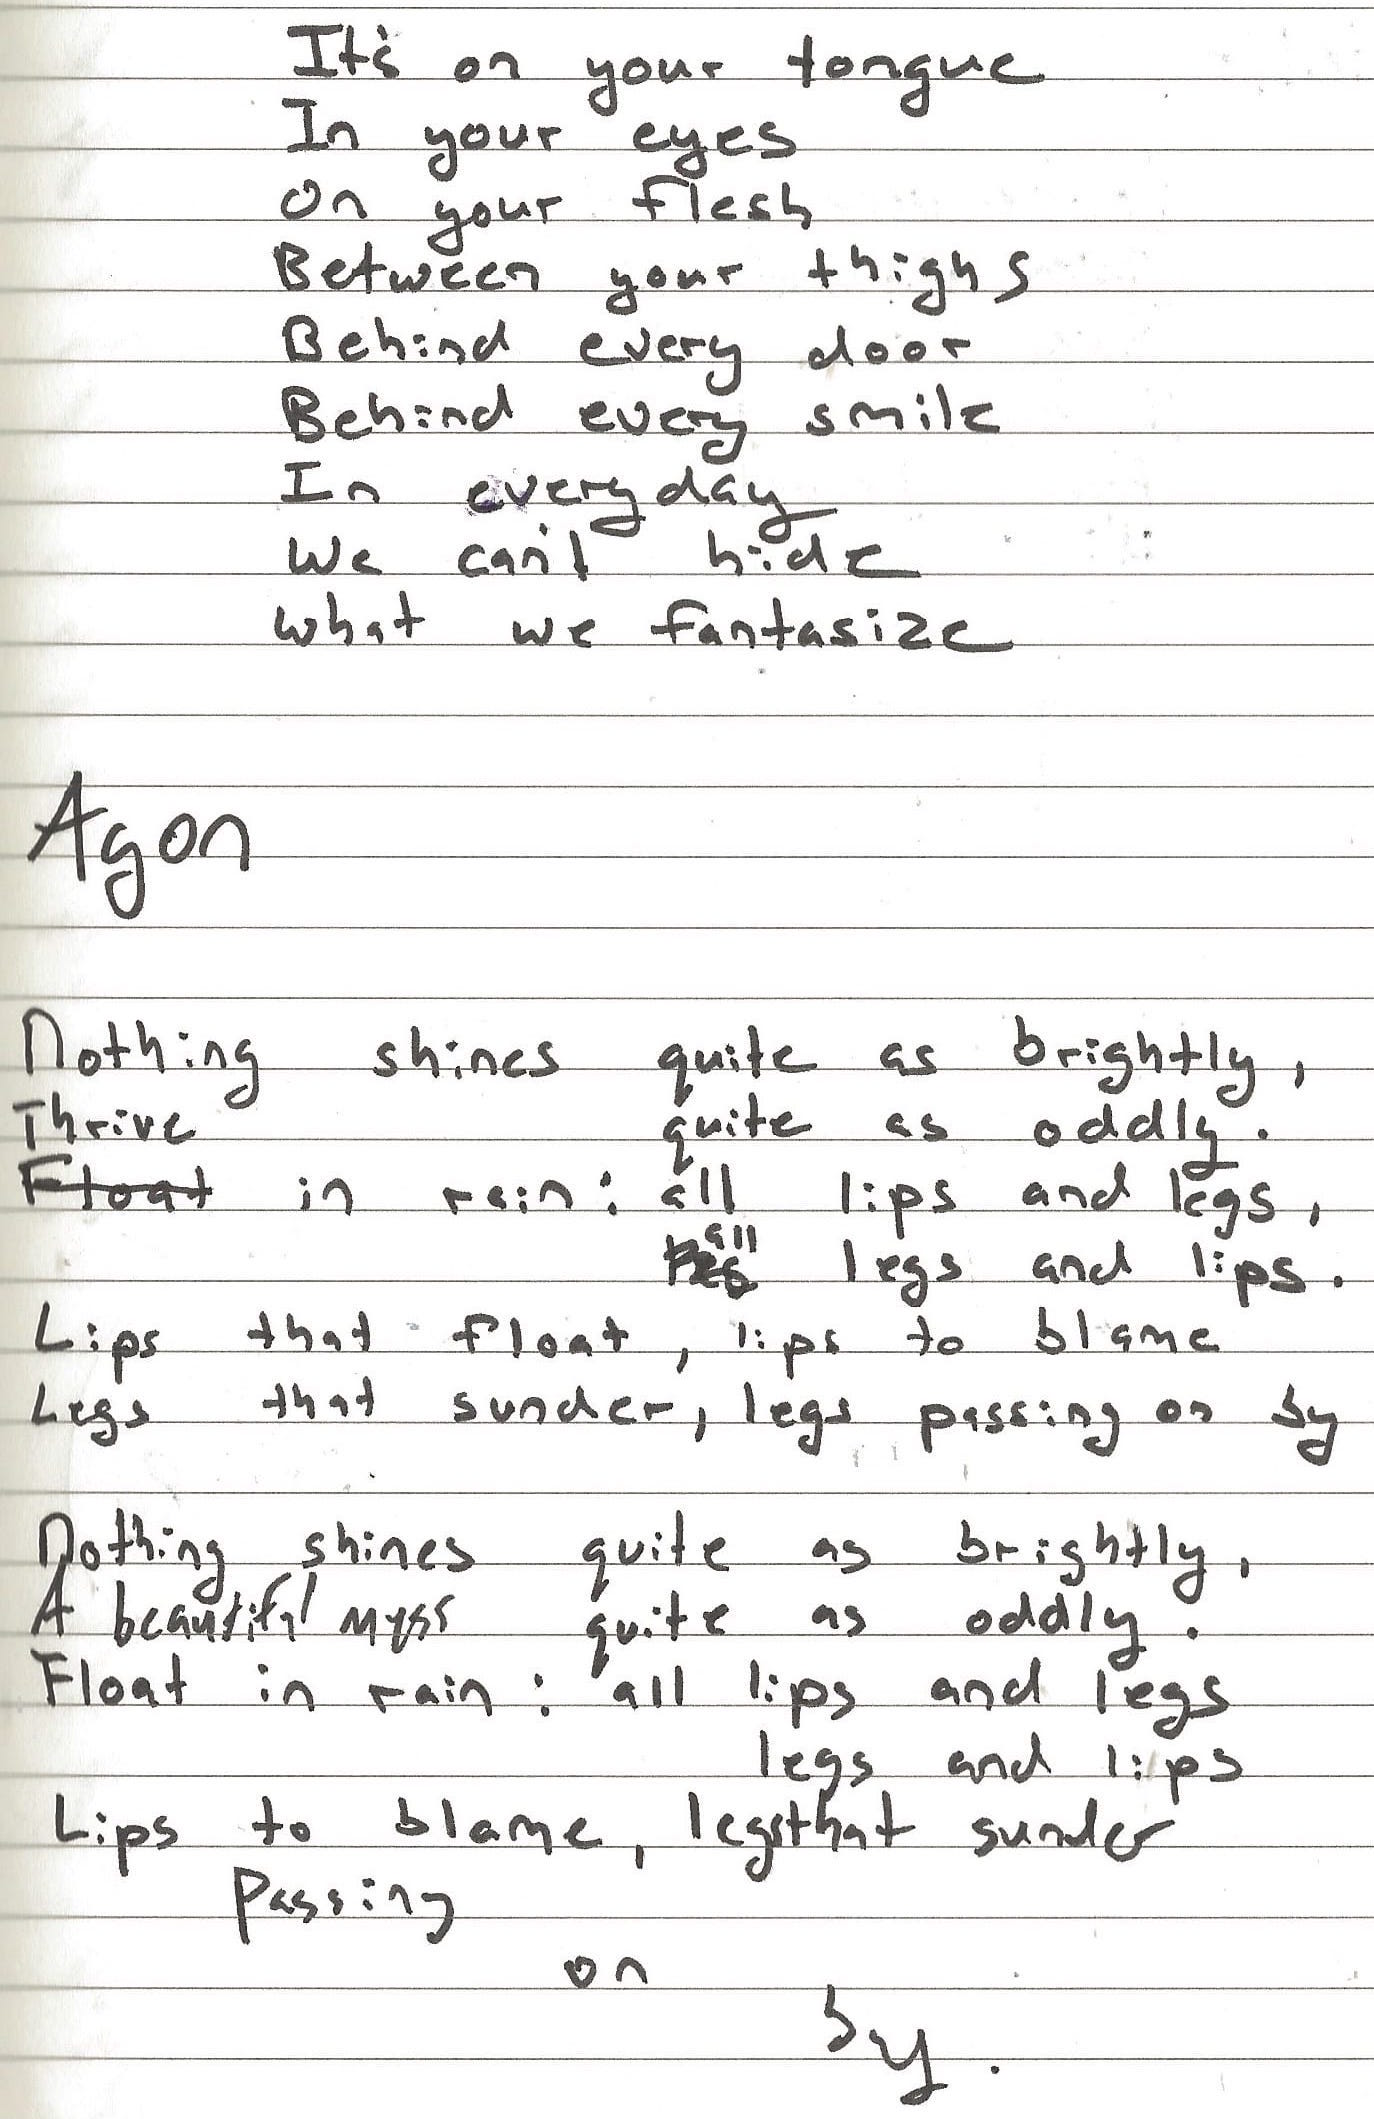 It's on your tongue
In your eyes
On your flesh
Between your thighs
Behind every door
Behind every smile
In everyday
We can't hide
What we fantasize
Agon
Nothing shines quite as brightly,
Thrive quite as oddly.
Float in rain: all lips and legs,
all legs and lips.
Lips that float, lips to blame
Legs that sunder, legs passing on by
Nothing shines quite as brightly,
A beautiful quite as oddly.
Float in rain: all lips and legs
legs and lips
Lips to blame, legs that sunder
Passing
on
by.